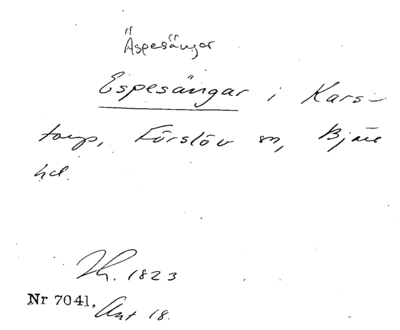 Äspesängar
Espesängar i Kars-
torp, Förslöv sn, Bjäre
hd.
1823
Nr 7041. Akt 18.